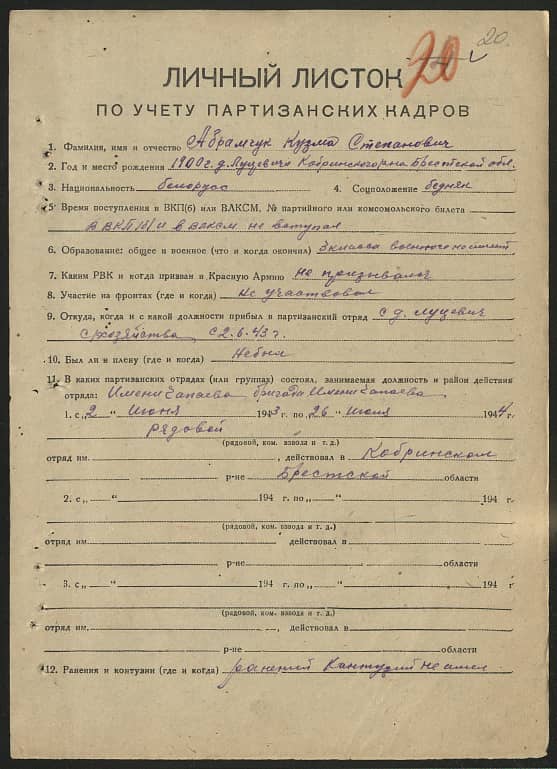 20
20.
ЛИЧНЫЙ ЛИСТОК
ПО УЧЕТУ ПАРТИЗАНСКИХ КАДРОВ
1. Фамилия, имя и отчество Абрамчук Кузма Степанович
2. Год и место рождения 1900 г. д. Луцевичи Кобринского р-на Брестской обл.
3. Национальность белорусс 4. Соцположение бедняк
5. Время поступления в ВКП(б) или ВЛКСМ, № партийного или комсомольского билета
В ВКП(б) и в ВЛКСМ не вступал
6. Образование: общее и военное (что и когда окончил) 3 класса военного не имеет
7. Каким РВК и когда призван в Красную Армию не призывался
8. Участие на фронтах (где и когда) не участвовал
9. Откуда, когда и с какой должности прибыл в партизанский отряд с д. Луцевич
с хозяйства с 2.6.43 г.
10. Был ли в плену (где и когда) не был
11. В каких партизанских отрядах (или группах) состоял, занимаемая должность и район действия
отряда: Имени Чапаева бригада Имени Чапаева
1. с „2 " Июня 1943 г. по „26 " Июля 1944 г.
рядовой
(рядовой, ком. взвода и т. д.)
отряд им. , действовал в Кобринском
р-не Брестской области
2. с „ " 194 г. по „ " 194 г.
(рядовой, ком. взвода и т. д.)
отряд им. действовал в
р-не области
3. с „ " 194 г. по „ " 194 г
(рядовой, ком. взвода и т. д.)
отряд им. , действовал в
р-не области
12. Ранения и контузии (где и когда) ранений Кантузий не имел